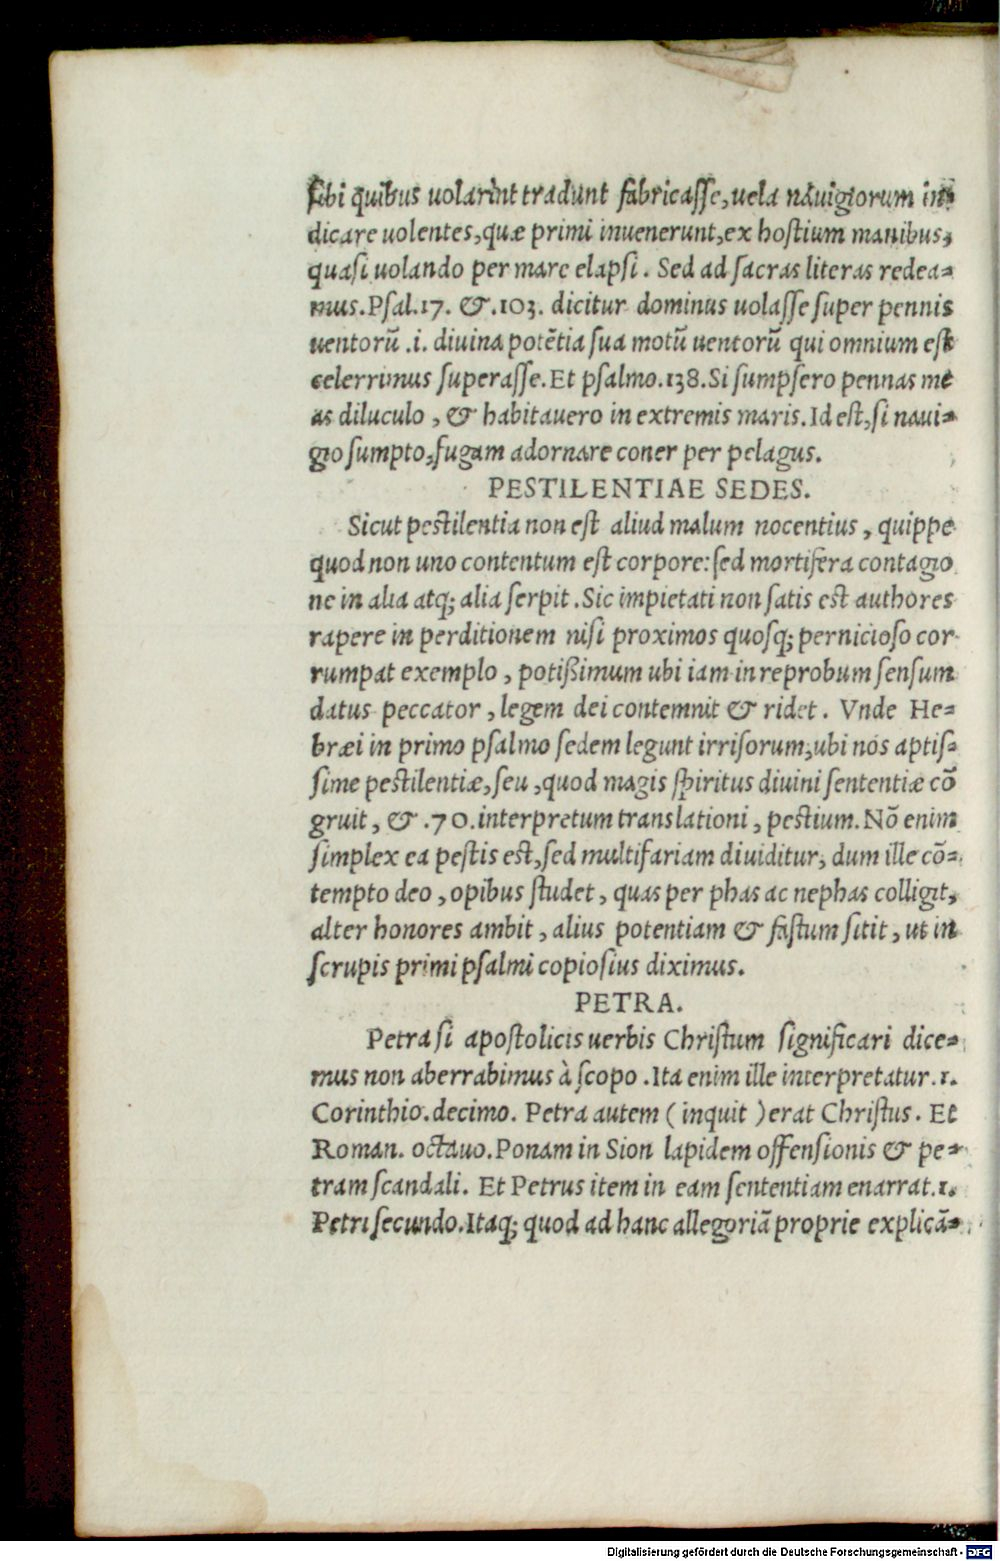 sibi quibus uolarint tradunt fabricasse, uela nauigiorum in
dicare uolentes, quæ primi inuenerunt, ex hostium manibus,
quasi uolando per mare elapsi. Sed ad sacras literas redea-
mus. Psal. 17. & .103. dicitur dominus uolasse super pennis
uentorū .i. diuina potētia sua motū uentorū qui omnium est
celerrimus superasse. Et psalmo. 138. Si sumpsero pennas me
as diluculo, & habitauero in extremis maris. Id est, si naui-
gio sumpto, fugam adornare coner per pelagus.
PESTILENTIAE SEDES.
Sicut pestilentia non est aliud malum nocentius, quippe
quod non uno contentum est corpore: sed mortifera contagio
ne in alia atq; alia serpit. Sic impietati non satis est authores
rapere in perditionem nisi proximos quosq; pernicioso cor
rumpat exemplo, potißimum ubi iam in reprobum sensum
datus peccator, legem dei contemnit & ridet. Vnde He-
bræi in primo psalmo sedem legunt irrisorum, ubi nos aptis-
sime pestilentiæ, seu, quod magis spiritus diuini sententiæ cō
gruit, & .70. interpretum translationi, pestium. Nō enim
simplex ea pestis est, sed multifariam diuiditur, dum ille cō-
tempto deo, opibus studet, quas per phas ac nephas colligit,
alter honores ambit, alius potentiam & fastum sitit, ut in
scrupis primi psalmi copiosius diximus.
PETRA.
Petra si apostolicis uerbis Christum significari dice-
mus non aberrabimus à scopo. Ita enim ille interpretatur. 1.
Corinthio. decimo. Petra autem (inquit) erat Christus. Et
Roman. octauo. Ponam in Sion lapidem offensionis & pe-
tram scandali. Et Petrus item in eam sententiam enarrat. 1.
Petri secundo. Itaq; quod ad hanc allegoriā proprie explicā-
Digitalisierung gefördert durch die Deutsche Forschungsgemeinschaft - DFG